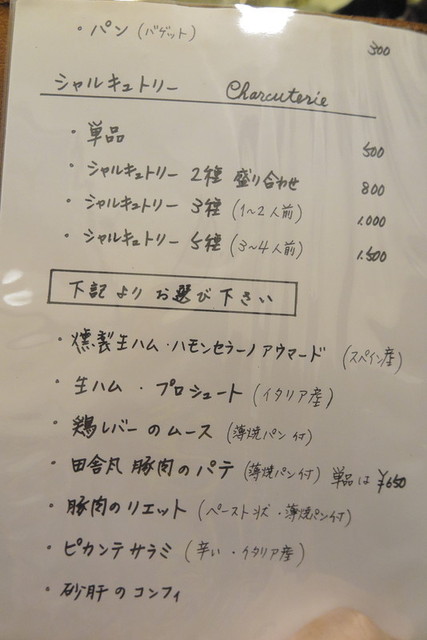 ・パン（バゲット） 300
シャルキュトリー Charcuterie
・単品 500
・シャルキュトリー 2種 盛り合わせ 800
・シャルキュトリー 3種（1～2人前） 1.000
・シャルキュトリー 5種（3～4人前） 1.500
下記よりお選び下さい
・燻製生ハム・ハモンセラーノ アウマード（スペイン産）
・生ハム・プロシュート（イタリア産）
・鶏レバーのムース（薄焼パン付）
・田舎風 豚肉のパテ（薄焼パン付）単品は ¥650
・豚肉のリエット（ペースト状・薄焼パン付）
・ピカンテサラミ（辛い・イタリア産）
・砂肝のコンフィ